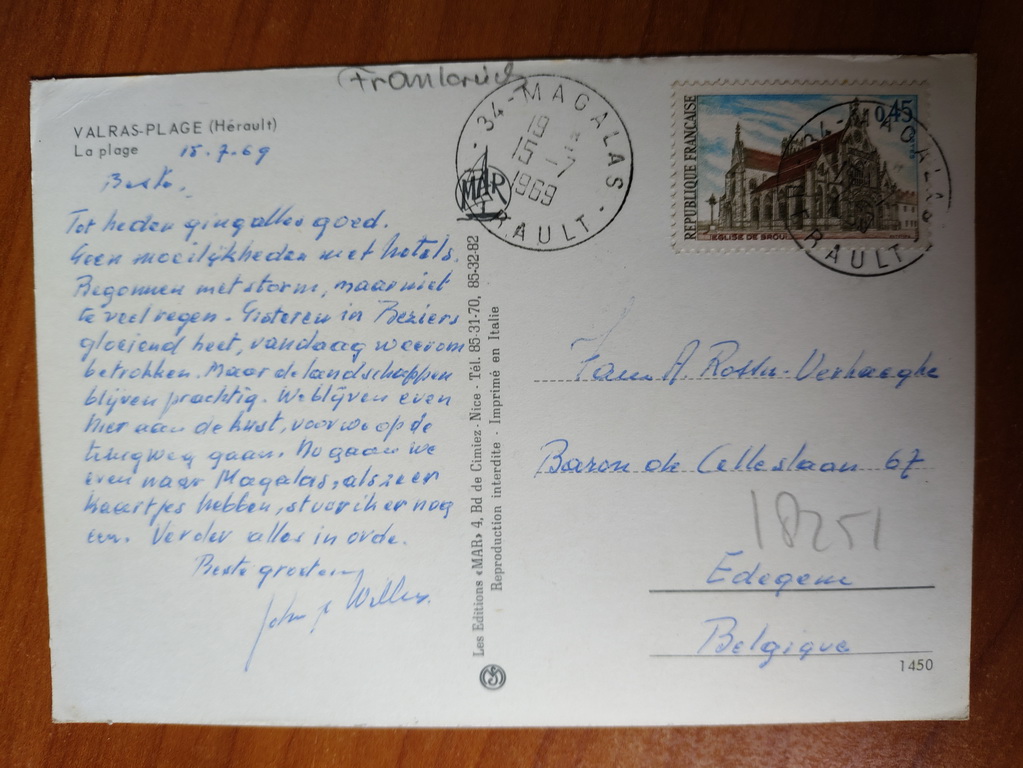 Frankreich
VALRAS-PLAGE (Hérault)
La plage 15.7.69
Tot heden ging alles goed.
Geen moeilijkheden met hotels.
Begonnen met storm, maar niet
te veel regen. Gisteren in Beziers
gloeiend heet, vandaag weerom
betrokken. Maar de landschappen
blijven prachtig. We blijven even
hier aan de kust, voor we op de
terugweg gaan. Nu gaan we
even naar Magalas, als ze er
kaartjes hebben, stuur ik er nog
een. Verder alles in orde.
Beste groeten
John & Willy.
MAR
Les Editions «MAR» 4, Bd de Cimiez - Nice - Tél. 85-31-70, 85-32-82
Reproduction interdite - Imprimé en Italie
34-MAGALAS
19
15-7
1969
RAULT
REPUBLIQUE FRANÇAISE
0,45
EGLISE DE BROU
34-MAGALAS
RAULT
A Verhaeghe
Baron de Celleslaan 67
18251
Edegem
Belgique
1450